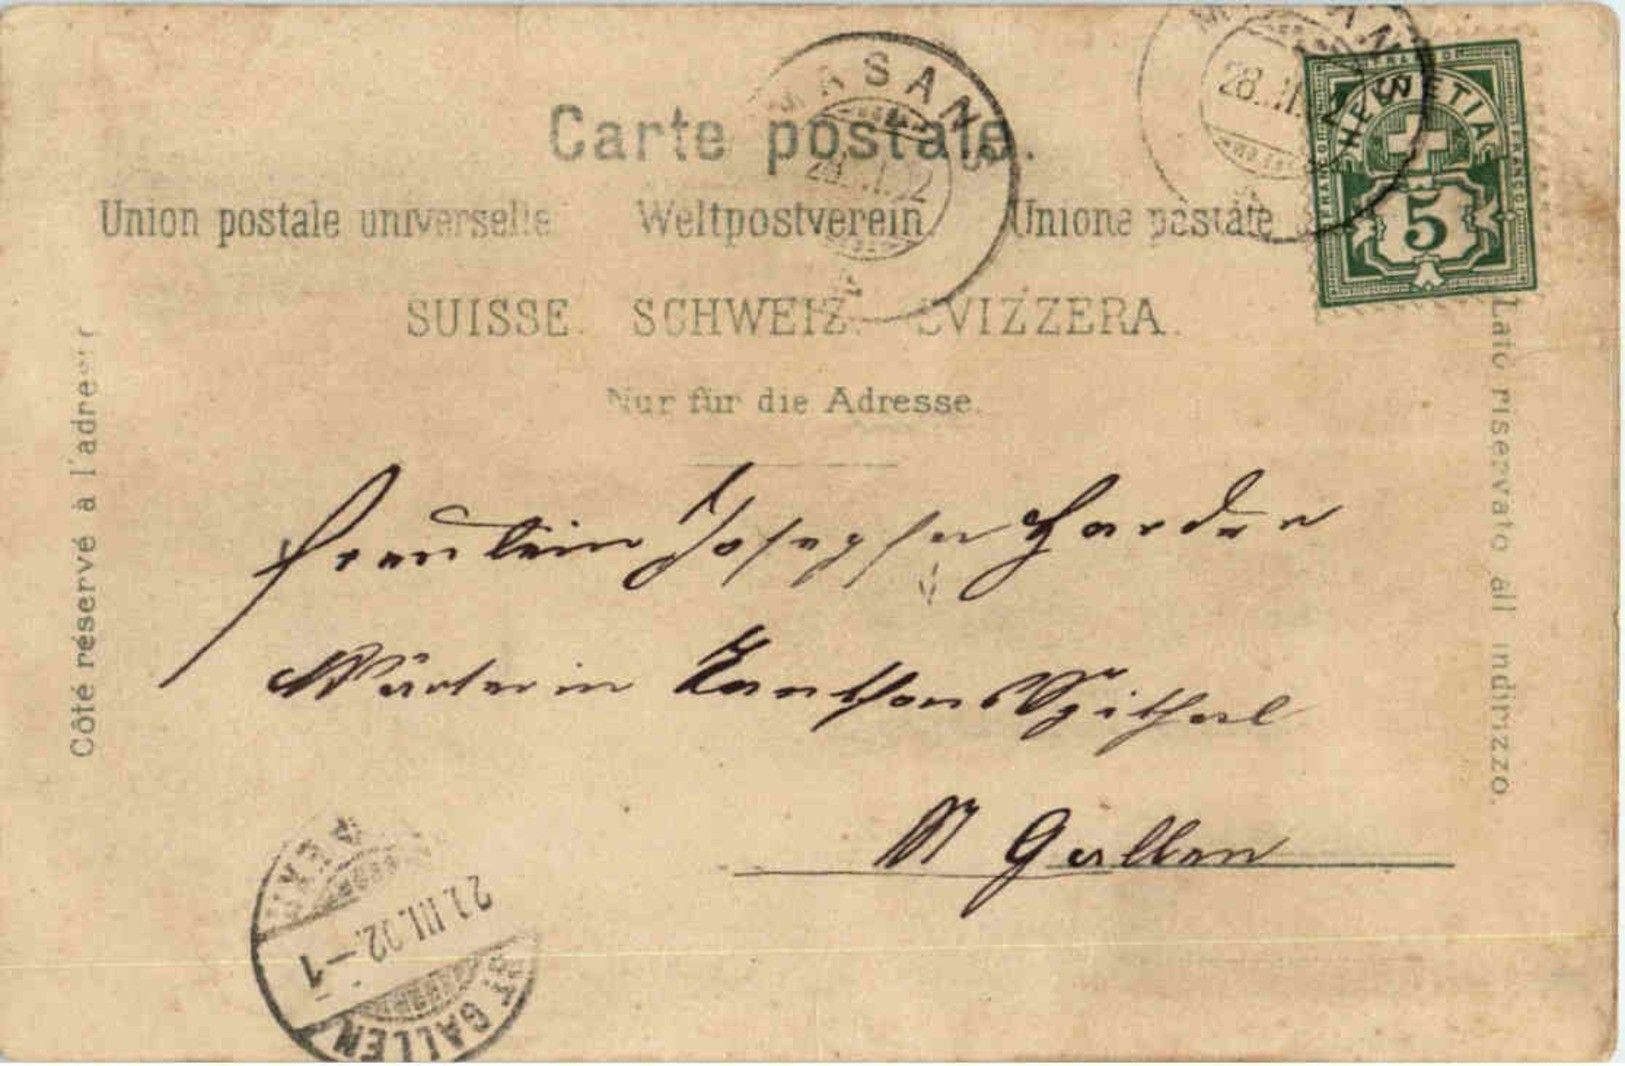 Carte postale.
MASANS
MASANS
28. II. 02
HELVETIA
FRANCO
FRANCO
5
Union postale universelle Weltpostverein Unione postale
SUISSE. SCHWEIZ. SVIZZERA.
Nur für die Adresse.
Côté réservé à l'adresse
Lato riservato all indirizzo.
Fräulein Josepha
Wärterin Kanthonsspithal
St Gallen
III.02.–1
ST. GALLEN